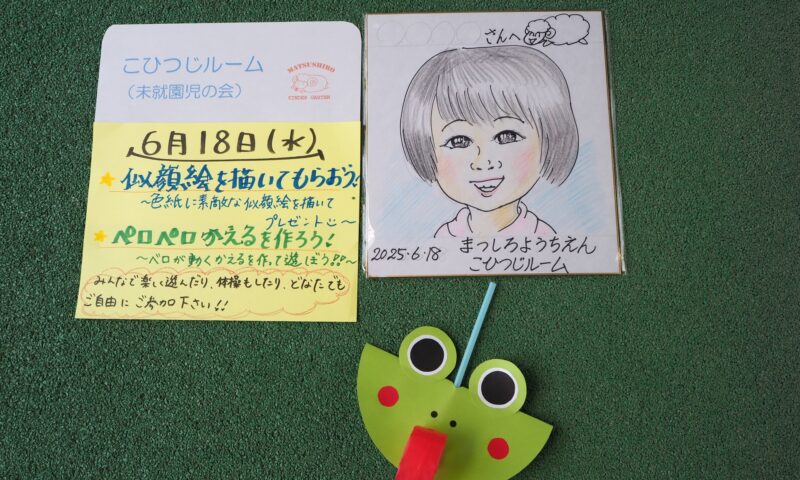 こひつじルーム
（未就園児の会）
MATSUSHIRO
KINDER GARTEN
6月18日(水)
似顔絵を描いてもらおう!
～色紙に素敵な似顔絵を描いて
プレゼント
～
ペロペロかえるを作ろう!
～ベロが動くかえるを作って遊ぼう!!～
みんなで楽しく遊んだり、体操もしたり、どなたでも
ご自由にご参加下さい!!
さんへ
2025.6.18
まつしろようちえん
こひつじルーム